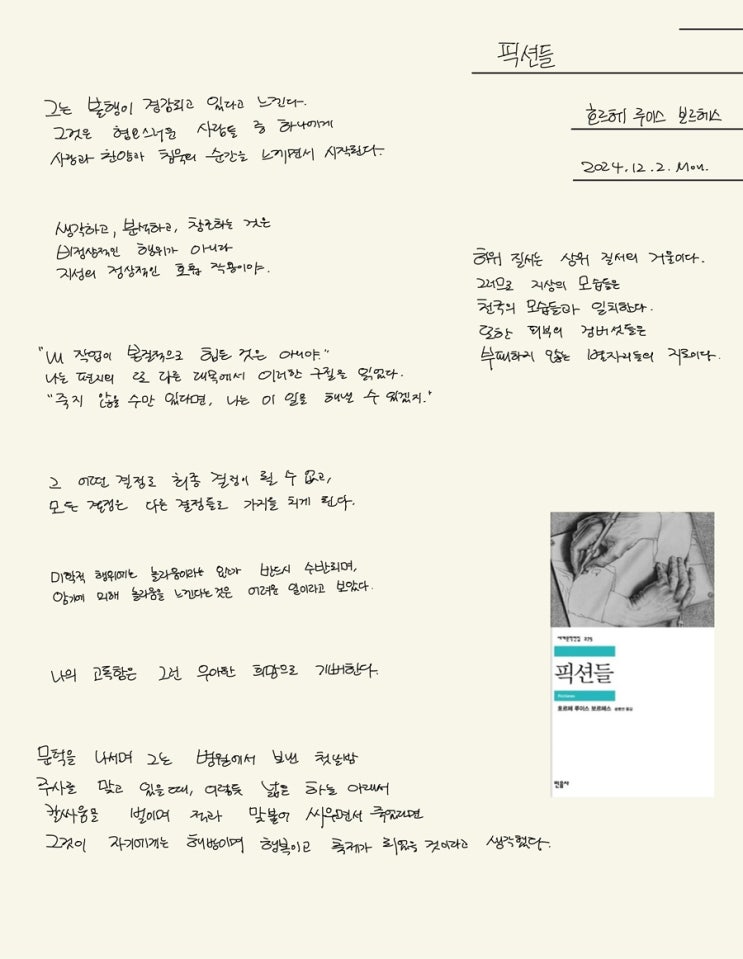 픽션들
호르헤 루이스 보르헤스
2024.12.2. Mon.
그는 불행이 경감되고 있다고 느낀다.
그것은 혐오스러운 사람들 중 하나에게
사랑과 찬양과 침묵의 순간을 느끼면서 시작된다.
생각하고, 분석하고, 창조하는 것은
비정상적인 행위가 아니라
지성의 정상적인 호흡 작용이야.
"내 작업이 본질적으로 힘든 것은 아니야."
나는 편지의 또 다른 대목에서 이러한 구절을 읽었다.
"죽지 않을 수만 있다면, 나는 이 일을 해낼 수 있겠지."
그 어떤 결정도 최종 결정이 될 수 없고,
모든 결정은 다른 결정들로 가지를 치게 된다.
미학적 행위에는 놀라움이라는 인자가 반드시 수반되며,
암기에 의해 놀라움을 느낀다는 것은 어려운 일이라고 보았다.
나의 고독함은 그런 우아한 희망으로 기뻐한다.
문턱을 나서며 그는 병원에서 보낸 첫날밤
주사를 맞고 있을 때, 이렇듯 넓은 하늘 아래서
칼싸움을 벌이며 적과 맞붙어 싸우면서 죽었다면
그것이 자기에게는 해방이며 행복이고 축제가 되었을 것이라고 생각했다.
하위 질서는 상위 질서의 거울이다.
그러므로 지상의 모습들은
천국의 모습들과 일치한다.
또한 피부의 검버섯들은
부패하지 않는 별자리들의 지도이다.
세계문학전집 275
픽션들
Ficciones
호르헤 루이스 보르헤스 송병선 옮김
민음사